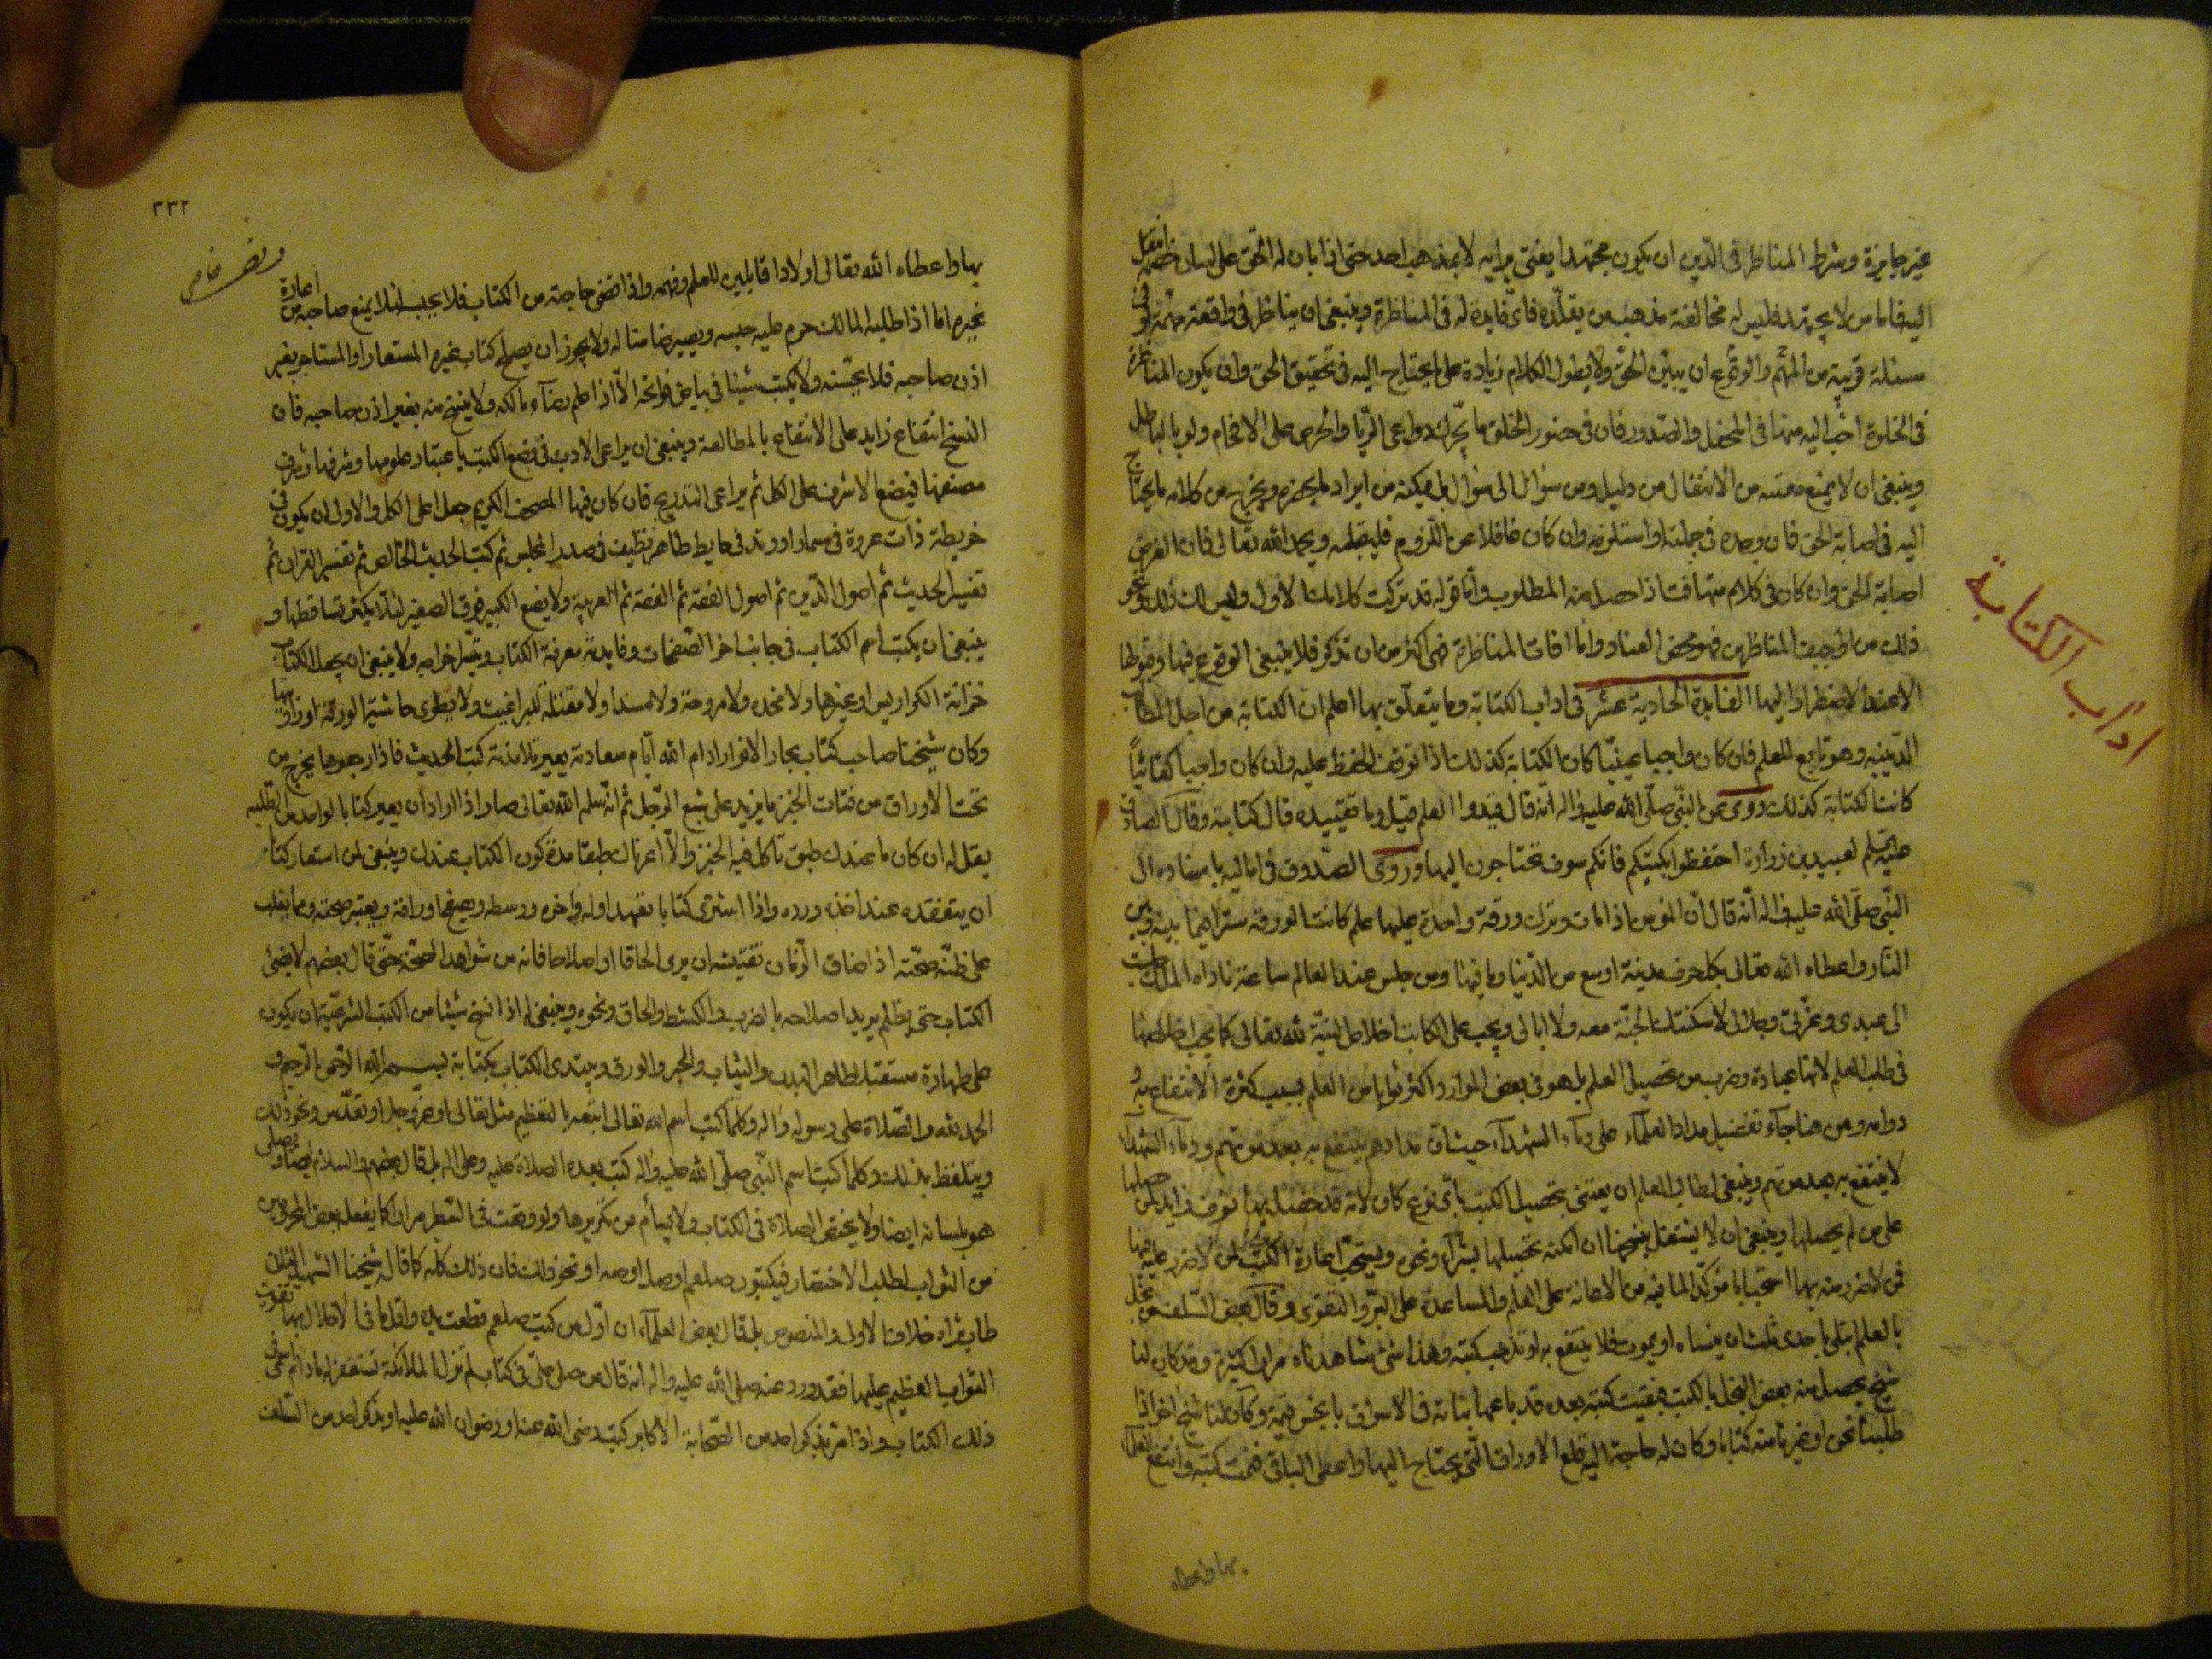 غير جايزة وشرط المناظر فى الدين ان يكون مجتهدا يفتى برايه لا بمذهب احد حتى اذا بان له الحق على لسان خصمه انتقل
اليه فاما من لا يجتهد فليس له مخالفة مذهب من يقلده فاى فايدة له فى المناظرة وينبغى ان يناظر فى واقعة مهمة او فى
مسئلة قريبة من المهم والوقوع ان يبين الحق ولا يطول الكلام زيادة على ما يحتاج اليه فى تحقيق الحق وان يكون المناظرة
فى الخلوة احب اليه منها فى المحفل والصدور فان فى حضور الخلق ما يحرك دواعى الريا والحرص على الافحام ولو بالباطل
وينبغى ان لا يمنع معينه من الانتقال من دليل ومن سؤال الى سؤال بل يمكنه من ايراد ما يحضره ويخرج من كلامه ما يحتاج
اليه فى اصابة الحق فان وجده فى جملته او استلزمه وان كان غافلا عن اللزوم فليقبله ويحمد الله تعالى فان الغرض
اصابة الحق وان كان فى كلام متهافت اذا حصل منه المطلوب واما قوله قد تركت كلامك الاول وليس لك ذلك ونحو
ذلك من اراجيف المناظرين فهو محض العناد واما افات المناظرة فهى اكثر من ان تذكر فلا ينبغى الوقوع فيها وقبولها
الا عند الاضطرار اليها الفايدة الحادية عشر فى اداب الكتابة وما يتعلق بها اعلم ان الكتابة من اجل المطالب
الدينية وهو تابع للعلم فان كان واجبا عينيا كان الكتابة كذلك اذا توقف الحفظ عليه وان كان واجبا كفائيا
كانت الكتابة كذلك روى عن النبى صلى الله عليه واله انه قال قيدوا العلم قيل وما تقييده قال كتابته وقال الصادق
عليه السلم لعبيد بن زرارة احتفظوا بكتبكم فانكم سوف تحتاجون اليها وروى الصدوق فى اماليه باسناده الى
النبى صلى الله عليه واله انه قال ان المؤمن اذا مات وترك ورقة واحدة عليها علم كانت الورقة سترا فيما بينه وبين
النار واعطاه الله تعالى بكل حرف مدينة اوسع من الدنيا وما فيها ومن جلس عند العالم ساعة ناداه الملك جلست
الى عبدى وعزتى وجلالى لاسكنتك الجنة معه ولا ابالى ويجب على الكاتب اخلاص النية لله تعالى كما يجب اخلاصها
فى طلب العلم لانها عبادة وضرب من تحصيل العلم بل هو فى بعض الموارد اكثر ثوابا من العلم بسبب كثرة الانتفاع به و
دوامه ومن هنا جاء تفضيل مداد العلماء على دماء الشهداء حيث ان مدادهم ينتفع به بعد موتهم ودماء الشهداء
لا ينتفع به بعد موتهم وينبغى لطالب العلم ان يعتنى بتحصيل الكتب باى نوع كان لانه قد حصل بها
على من لم يحصلها وينبغى ان لا يشتغل بنسخها ان امكنه تحصيلها بشراء ونحوه ويستحب اعارة الكتب لمن لا ضرر عليه فيها
ممن لا ضرر منه بها استحبابا مؤكدا لما فيه من الاعانة على العلم والمساعدة على البر والتقوى وقال بعض السلف من بخل
بالعلم ابتلى باحدى ثلث ان ينساه او يموت فلا ينتفع به او تذهب كتبه وهذا شئ شاهدناه مرارا كثيرة وقد كان لنا
شيخ يحصل منه بعض البخل بالكتب فبقيت كتبه بعده قد باعها بناته فى الاسواق بابخس قيمة وكان لنا شيخ اخر اذا
طلبنا نحن او غيرنا منه كتابا وكان له حاجة اليه قلع الاوراق التى يحتاج اليها واعطى الباقى فنمت كتبه وانتفع العلماء
بها واعطاه
اداب الكتابة
٣٣٢
بها واعطاه الله تعالى اولادا قابلين للعلم وفهمه واذا قضى حاجته من الكتاب فلا يحبسه لئلا يمنع صاحبه من اعارة
غيره اما اذا طلبه المالك حرم عليه حبسه ويصير ضامنا له ولا يجوز ان يصلح كتاب غيره المستعار او المستاجر بغير
اذن صاحبه فلا يحشيه ولا يكتب شيئا فى بياض فواتحه الا اذا علم رضاء مالكه ولا ينسخ منه بغير اذن صاحبه فان
النسخ انتفاع زايد على الانتفاع بالمطالعة وينبغى ان يراعى الادب فى وضع الكتب باعتبار علومها وشرفها وشرف
مصنفها فيضع الاشرف على الكل ثم يراعى التدريج فان كان فيها المصحف الكريم جعل اعلى الكل والاولى ان يكون فى
خريطة ذات عروة فى مسمار او وتد فى حايط طاهر نظيف فى صدر المجلس ثم كتب الحديث الخالص ثم تفسير القران ثم
تفسير الحديث ثم اصول الدين ثم اصول الفقه ثم الفقه ثم العربية ولا يضع الكبير فوق الصغير لئلا يكثر تساقطها و
ينبغى ان يكتب اسم الكتاب فى جانب اخر الصفحات وفايدته معرفة الكتاب وتيسر اخراجه ولا ينبغى ان يجعل الكتاب
خزانة الكراريس او غيرها ولا مخده ولا مروحة ولا مسندا ولا مقتلة للبراغيث ولا يطوى حاشية الورقة او زاويتها
وكان شيخنا صاحب كتاب بحار الانوار ادام الله ايام سعادته يعير تلامذته كتب الحديث فاذا ارجعوها يخرج من
تحت الاوراق من فتات الخبز ما يزيد على شبع الرجل ثم انه سلمه الله تعالى صار اذا اراد ان يعير كتابا لواحد من الطلبه
يقل له ان كان ما عندك طبق تاكل فيه الخبز والا اعرناك طبقا مدة كون الكتاب عندك وينبغى لمن استعار كتابا
ان يتفقده عند اخذه ورده واذا اشترى كتابا تعهد اوله واخره ووسطه ويصفح اوراقه ويعتبر صحته ومما يغلب
على ظنه صحته اذا ضاق الزمان تفتيشه ان يرى الحاقا او اصلاحا فانه من شواهد الصحة حتى قال بعضهم لا يضئ
الكتاب حتى يظلم يريد اصلاحه بالضرب والكشط والحاق ونحوه وينبغى له اذا نسخ شيئا من الكتب الشرعية ان يكون
على طهارة مستقبلا طاهر البدن والثياب والحبر والورق ويبتدى الكتاب بكتابة بسم الله الرحمن الرحيم و
الحمد لله والصلاة على رسوله واله وكلما كتب اسم الله تعالى اتبعه بالتعظيم مثل تعالى او عز وجل او تقدس ونحو ذلك
ويتلفظ بذلك وكلما كتب اسم النبى صلى الله عليه واله كتب بعده الصلاة عليه وعلى اله بل قال بعضهم والسلام ايضا ويصلى
هو بلسانه ايضا ولا يختصر الصلاة فى الكتاب ولا يسأم من تكريرها ولو وقعت فى السطر مرارا كما يفعله بعض المحرومين
من الثواب لطلب الاختصار فيكتبون صلعم او صلم او صه او نحو ذلك فان ذلك كله كما قاله شيخنا الشهيد الثانى
طاب ثراه خلاف الاولى والمنصوص بل قال بعض العلماء ان اول من كتب صلعم قطعت يده واقل ما فى الاخلال بها تفويت
الثواب العظيم عليها فقد ورد عنه صلى الله عليه واله انه قال من صلى على فى كتاب لم تزل الملائكة تستغفر له ما دام اسمى فى
ذلك الكتاب واذا مر بذكر احد من الصحابة الاكابر كتب رضى الله عنه او رضوان الله عليه او بذكر احد من السلف